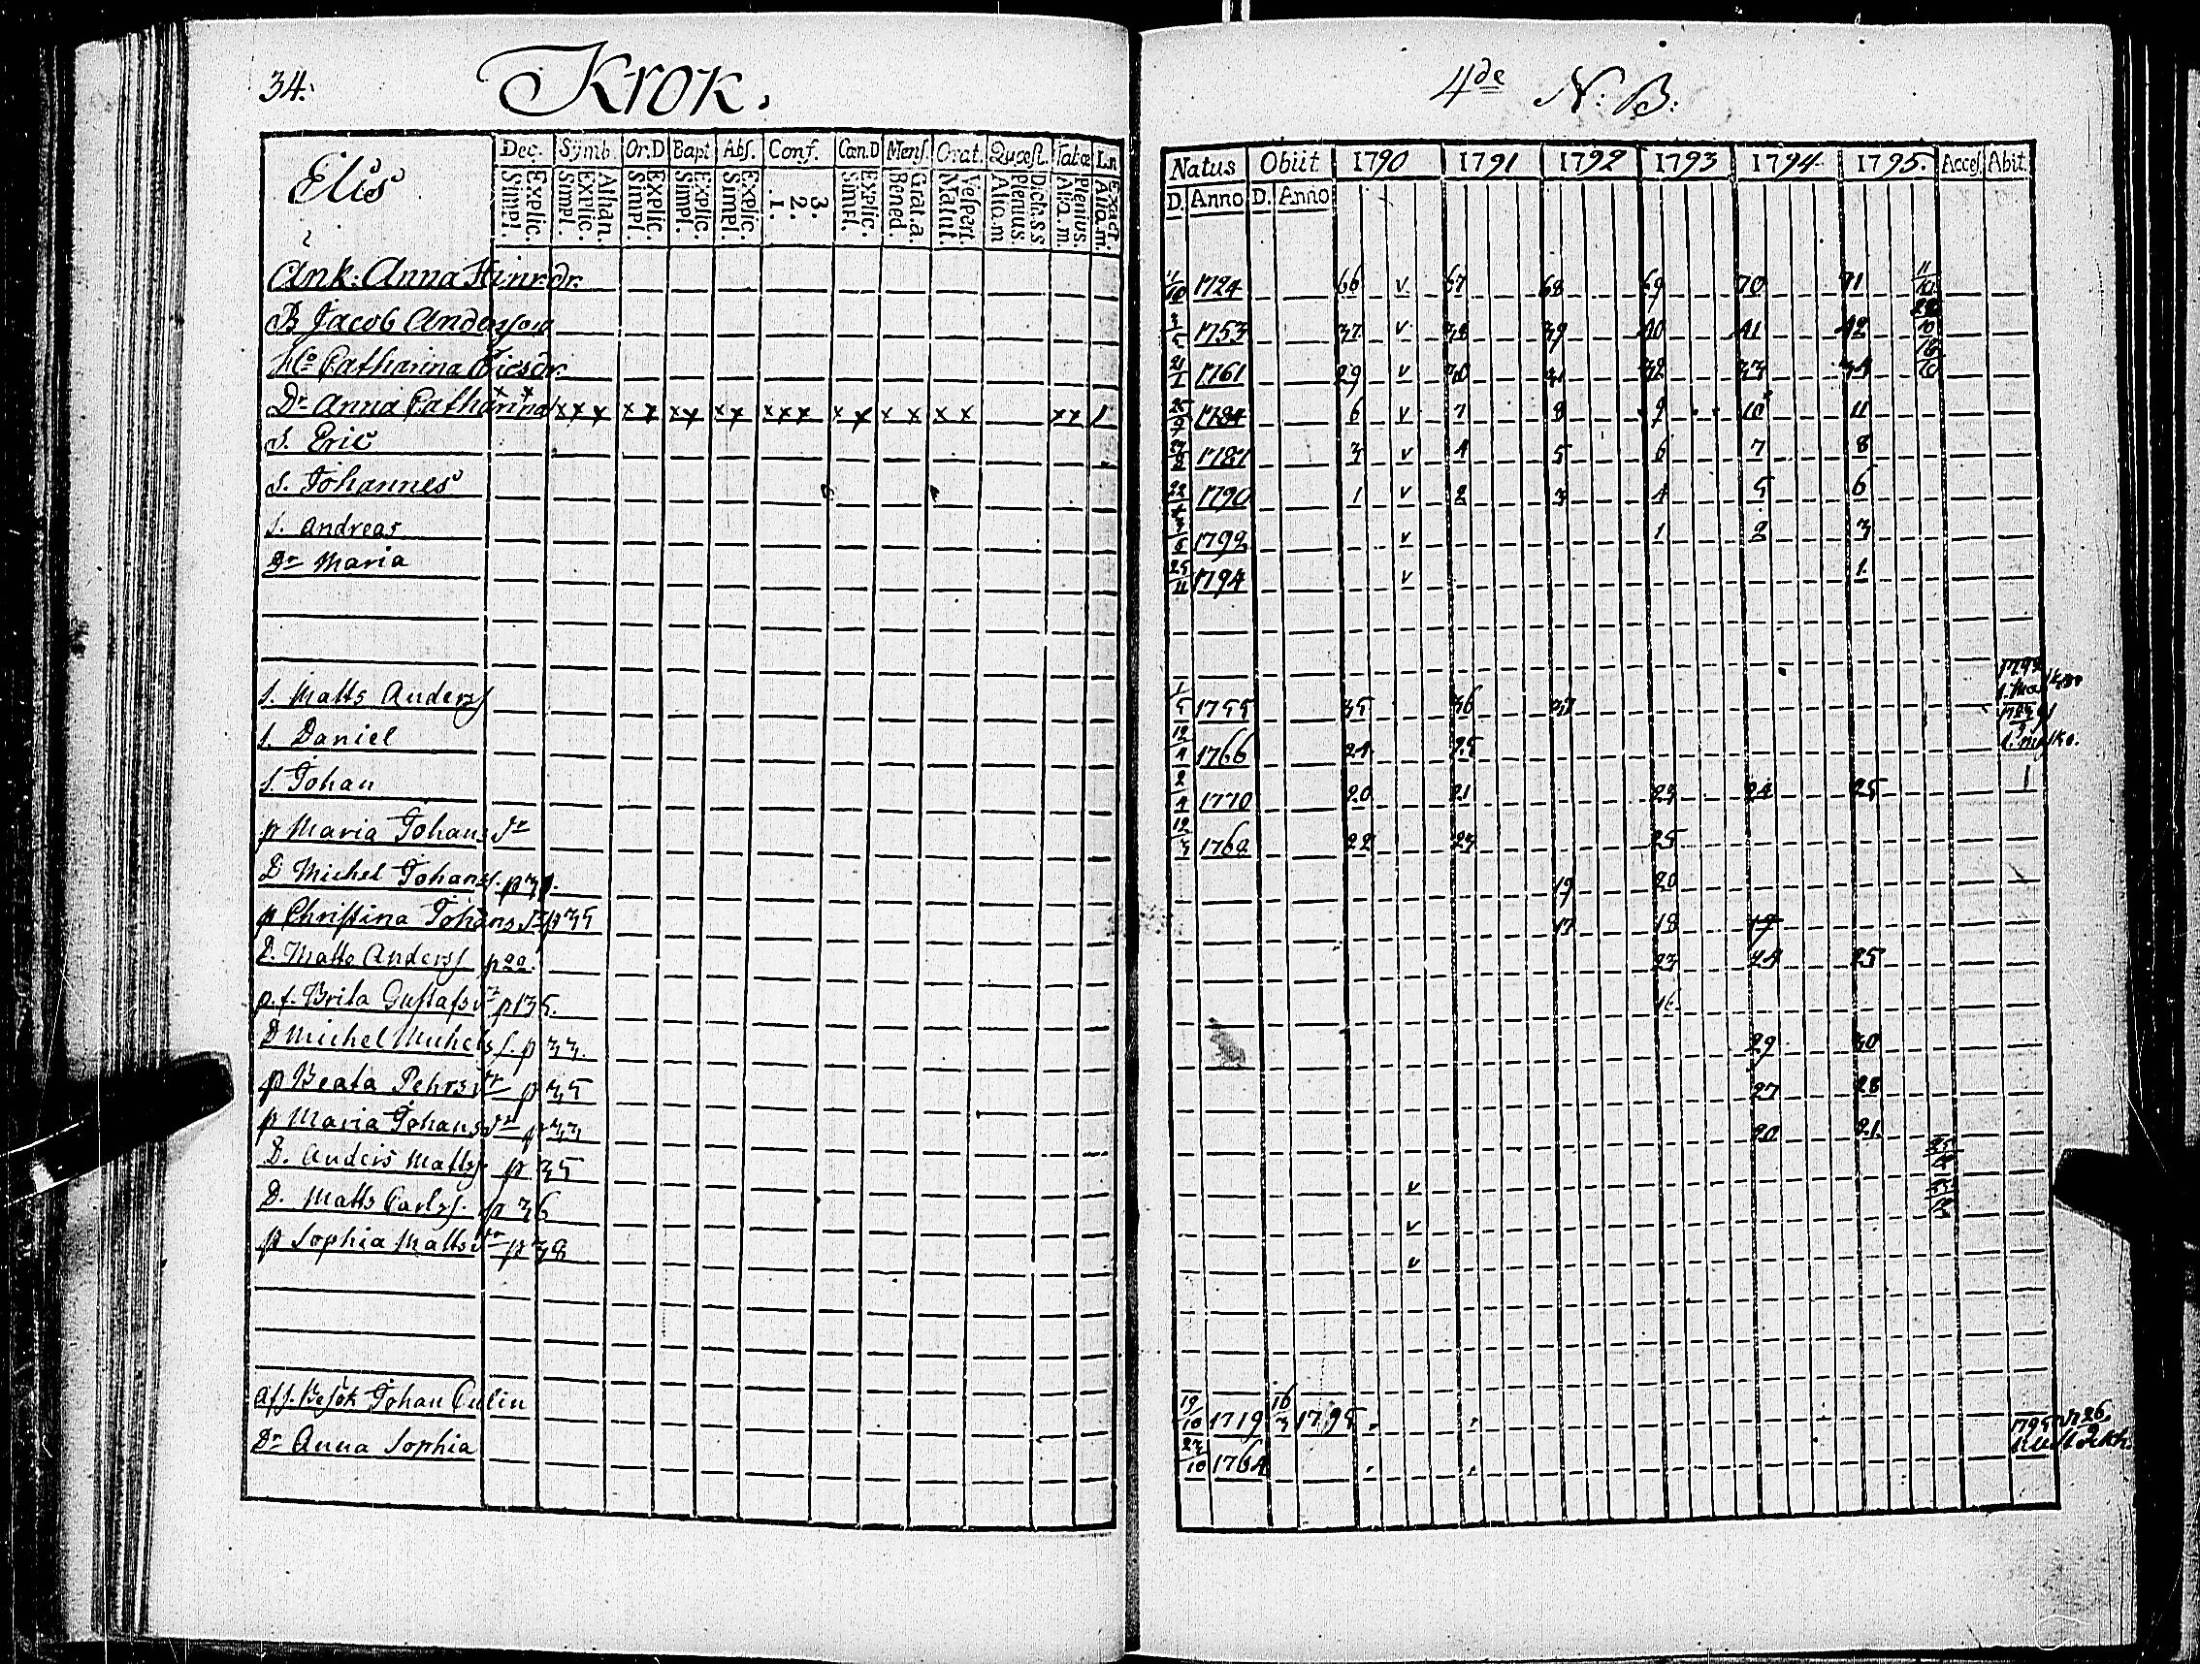 34. Krok.
Elis
Dec. Symb. Or.D Bapt Abs. Conf. Can.D Mens. Orat. Quæst. Tabæ Ln
Explic. Simpl. Athan. Explic. Simpl. Explic. Simpl. Explic. Simpl. Explic. Simpl. 3. 2. 1. Explic. Simpl. Grat.a. Bened. Vespert. Matut. Dict.SS Plenius. Aliq.m Plenius. Aliq.m. Exact. Aliq.m.
Ank: Anna Hinr:dr.
B Jacob Andersson
H:o Catharina Ericsdr.
Dr Anna Catharina x x x x x x x x x x x x x x x x x x x x x x x x
S. Eric
S. Johannes
S. Andreas
Dr Maria
S. Matts Anders
S. Daniel
S. Johan
p Maria Johans dr
D Michel Johans. p 31.
p Christina Johans dr p 35
D. Matts Anders p 22.
p. f. Brita Gustafs dr p 135.
D Michel Michels s. p 33.
p Beata Pehrs dr p 35
p Maria Johans dr p 33
D. Anders Matts p 35
D. Matts Carls. p 36
p Sophia Matts dr p 38
Johan Culin
Dr Anna Sophia
4de N. B.
Natus Obiit 1790 1791 1792 1793 1794 1795. Acces. Abit.
D. Anno D. Anno
1/10 1724 66 v 67 68 69 70 71 11/10
1753 37 v 38 39 40 41 42
21/1 1761 29 v 30 31 32 33 34
25/9 1784 6 v 7 8 9 10 11
1787 3 v 4 5 6 7 8
1790 1 v 2 3 4 5 6
1792 v 1 2 3
25/11 1794 v 1
1/5 1755 35 36 37
12/4 1766 24 25
2/4 1770 20 21 23 24 25 1
12/3 1768 22 23 25
19 20
17 18 19
23 24 25
16
29 30
27 28
20 21
v
v
v
19/10 1719 16/3 1795
23/10 1764